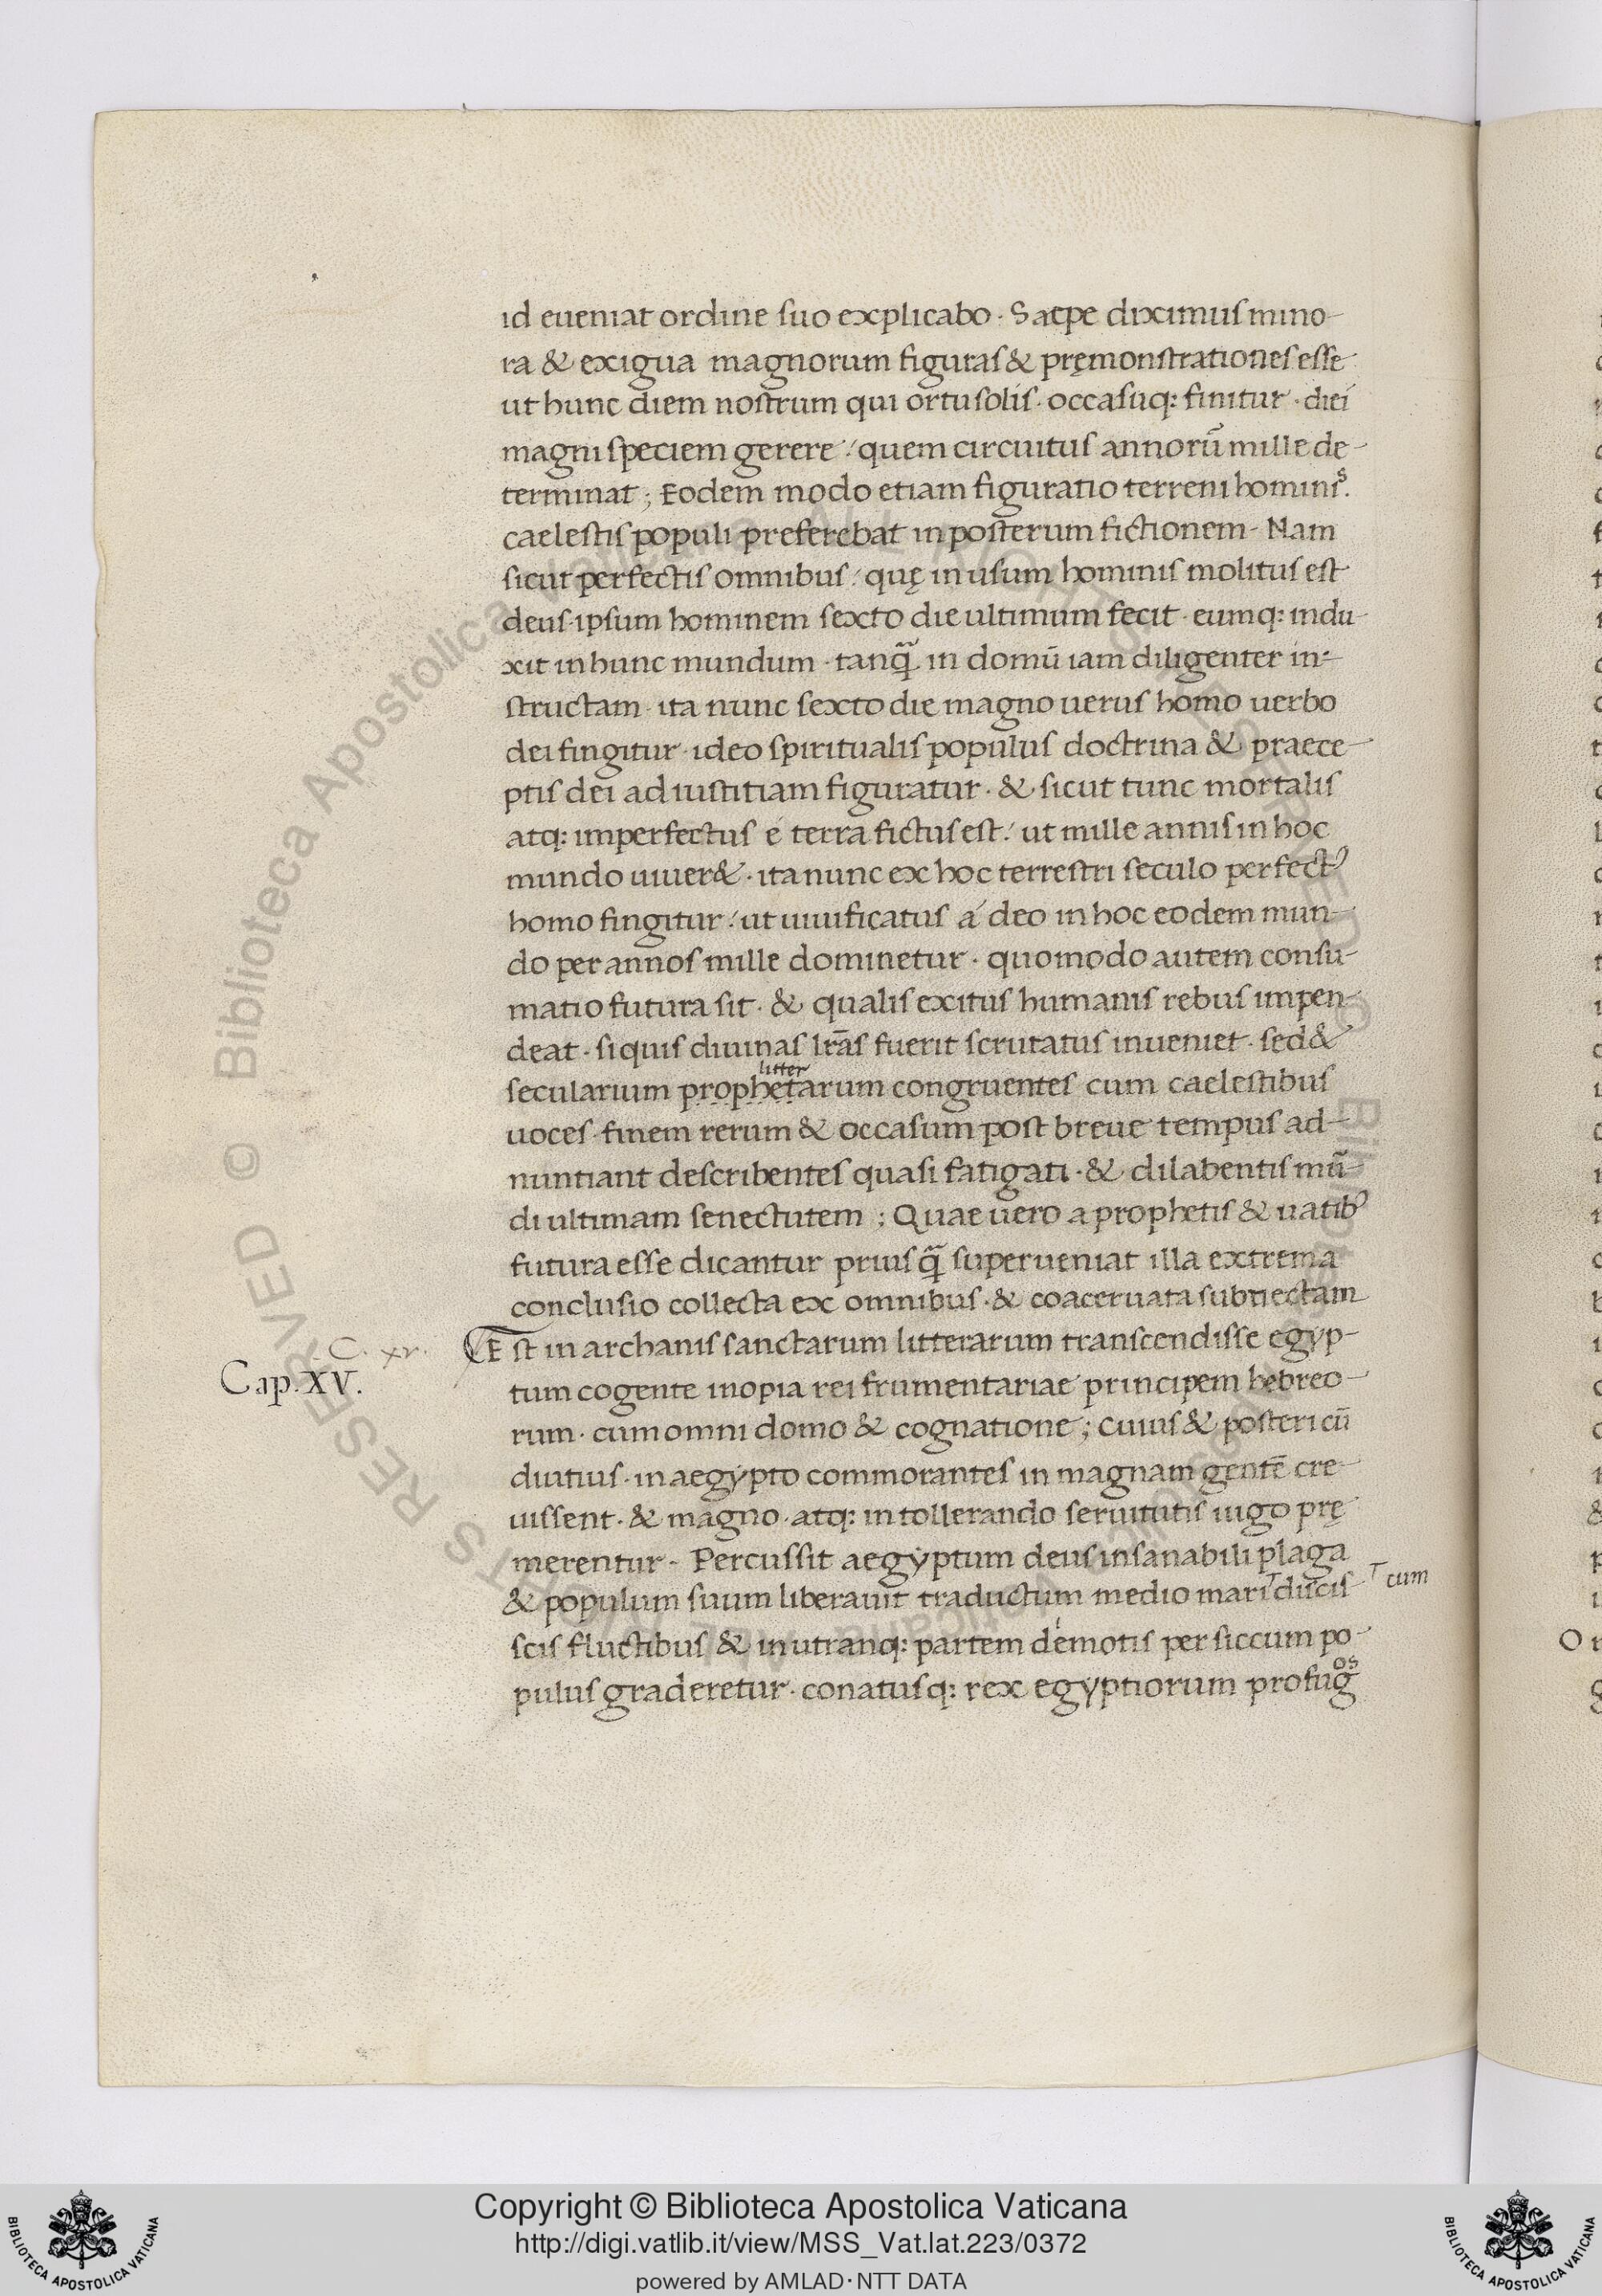 id eueniat ordine suo explicabo · Saepe diximus mino-
ra & exigua magnorum figuras & pręmonstrationes esse
ut hunc diem nostrum qui ortu solis · occasuq: finitur · diei
magni speciem gerere / quem circuitus annorū mille de-
terminat ; Eodem modo etiam figuratio terreni hominis.
caelestis populi preferebat in posterum fictionem - Nam
sicut perfectis omnibus / quę in usum hominis molitus est
deus · ipsum hominem sexto die ultimum fecit · eumq: indu-
xit in hunc mundum · tanq̄ in domū iam diligenter in-
structam · ita nunc sexto die magno uerus homo uerbo
dei fingitur · ideo spiritualis populus doctrina & praece-
ptis dei ad iustitiam figuratur · & sicut tunc mortalis
atq: imperfectus é terra fictus est / ut mille annis in hoc
mundo uiuer& · ita nunc ex hoc terrestri seculo perfectꝰ
homo fingitur / ut uiuificatus á deo in hoc eodem mun-
do per annos mille dominetur · quomodo autem consu-
matio futura sit · & qualis exitus humanis rebus impen-
deat · siquis diuinas lrās fuerit scrutatus inueniet · sed &
litter
secularium prophetarum congruentes cum caelestibus
uoces · finem rerum & occasum post breue tempus ad-
nuntiant describentes quasi fatigati · & dilabentis mū-
di ultimam senectutem ; Quae uero a prophetis & uatibꝰ
futura esse dicantur priusq̄ superueniat illa extrema
conclusio collecta ex omnibus · & coaceruata subnectam
C. xv.
Est in archanis sanctarum litterarum transcendisse egyp-
Cap. XV.
tum cogente inopia rei frumentariae principem hebreo-
rum · cum omni domo & cognatione ; cuius & posteri cū
diutius · in aegypto commorantes in magnam gentē cre-
uissent · & magno · atq: in tollerando seruitutis iugo prę
merentur - Percussit aegyptum deus insanabili plaga
& populum suum liberauit traductum medio mari discis- cum
scis fluctibus & in utranq: partem démotis per siccum po-
pulus graderetur · conatusq: rex egyptiorum profugos
Copyright © Biblioteca Apostolica Vaticana
http://digi.vatlib.it/view/MSS_Vat.lat.223/0372
powered by AMLAD·NTT DATA
BIBLIOTECA APOSTOLICA VATICANA
BIBLIOTECA APOSTOLICA VATICANA